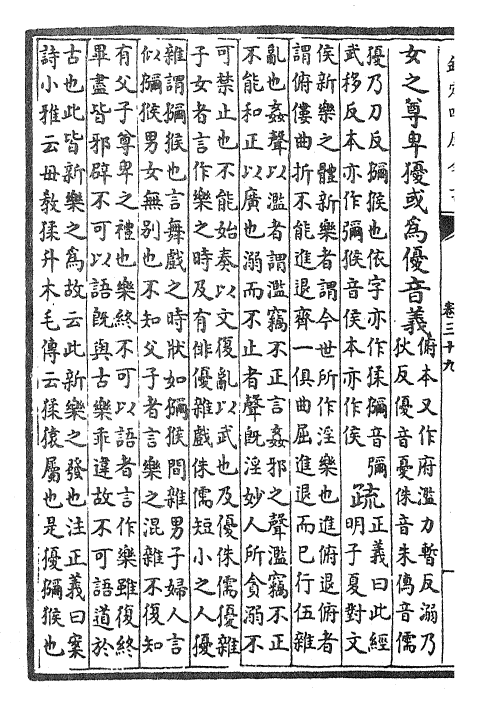 卷三十九
女之尊卑獶或為優音義
俯本又作府濫力暫反溺乃
狄反優音憂侏音朱音儒
獶乃刀反獼猴也依字亦作猱獼音彌
武移反本亦作彌猴音侯本亦作侯
疏
正義曰此經
明子夏對文
侯新樂之體新樂者謂今世所作淫樂也進俯退俯者
謂俯僂曲折不能進退齊一俱曲屈進退而已行伍雜
亂也姦聲以濫者謂濫竊不正言姦邪之聲濫竊不正
不能和正以廣也溺而不止者聲既淫妙人所貪溺不
可禁止也不能始奏以文復亂以武也及優侏儒獶雜
子女者言作樂之時及有俳優雜戲侏儒短小之人獶
雜謂獼猴也言舞戲之時狀如獼猴間雜男子婦人言
似獼猴男女無別也不知父子者言樂之混雜不復知
有父子尊卑之禮也樂終不可以語者言作樂雖復終
畢盡皆邪辟不可以語既與古樂乖違故不可語道於
古也此皆新樂之為故云此新樂之發也注正義曰案
詩小雅云毋教猱升木毛傳云猱猿屬也是獶獼猴也